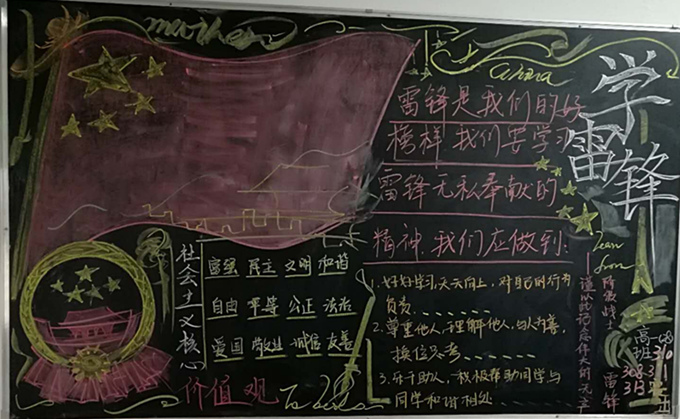 mother
China
学
雷锋
雷锋是我们的好
榜样 我们要学习
雷锋无私奉献的
精神.我们应做到:
1.好好学习,天天向上,对自己的行为
负责.......
2.尊重他人,理解他人,与人为善,
换位思考.......
3.乐于助人,积极帮助同学与
同学和谐相处......
Lean
from
社会主义核心
价值观
富强 民主 文明 和谐
自由 平等 公正 法治
爱国 敬业 诚信 友善
雷锋
高一08
班310
308311
313